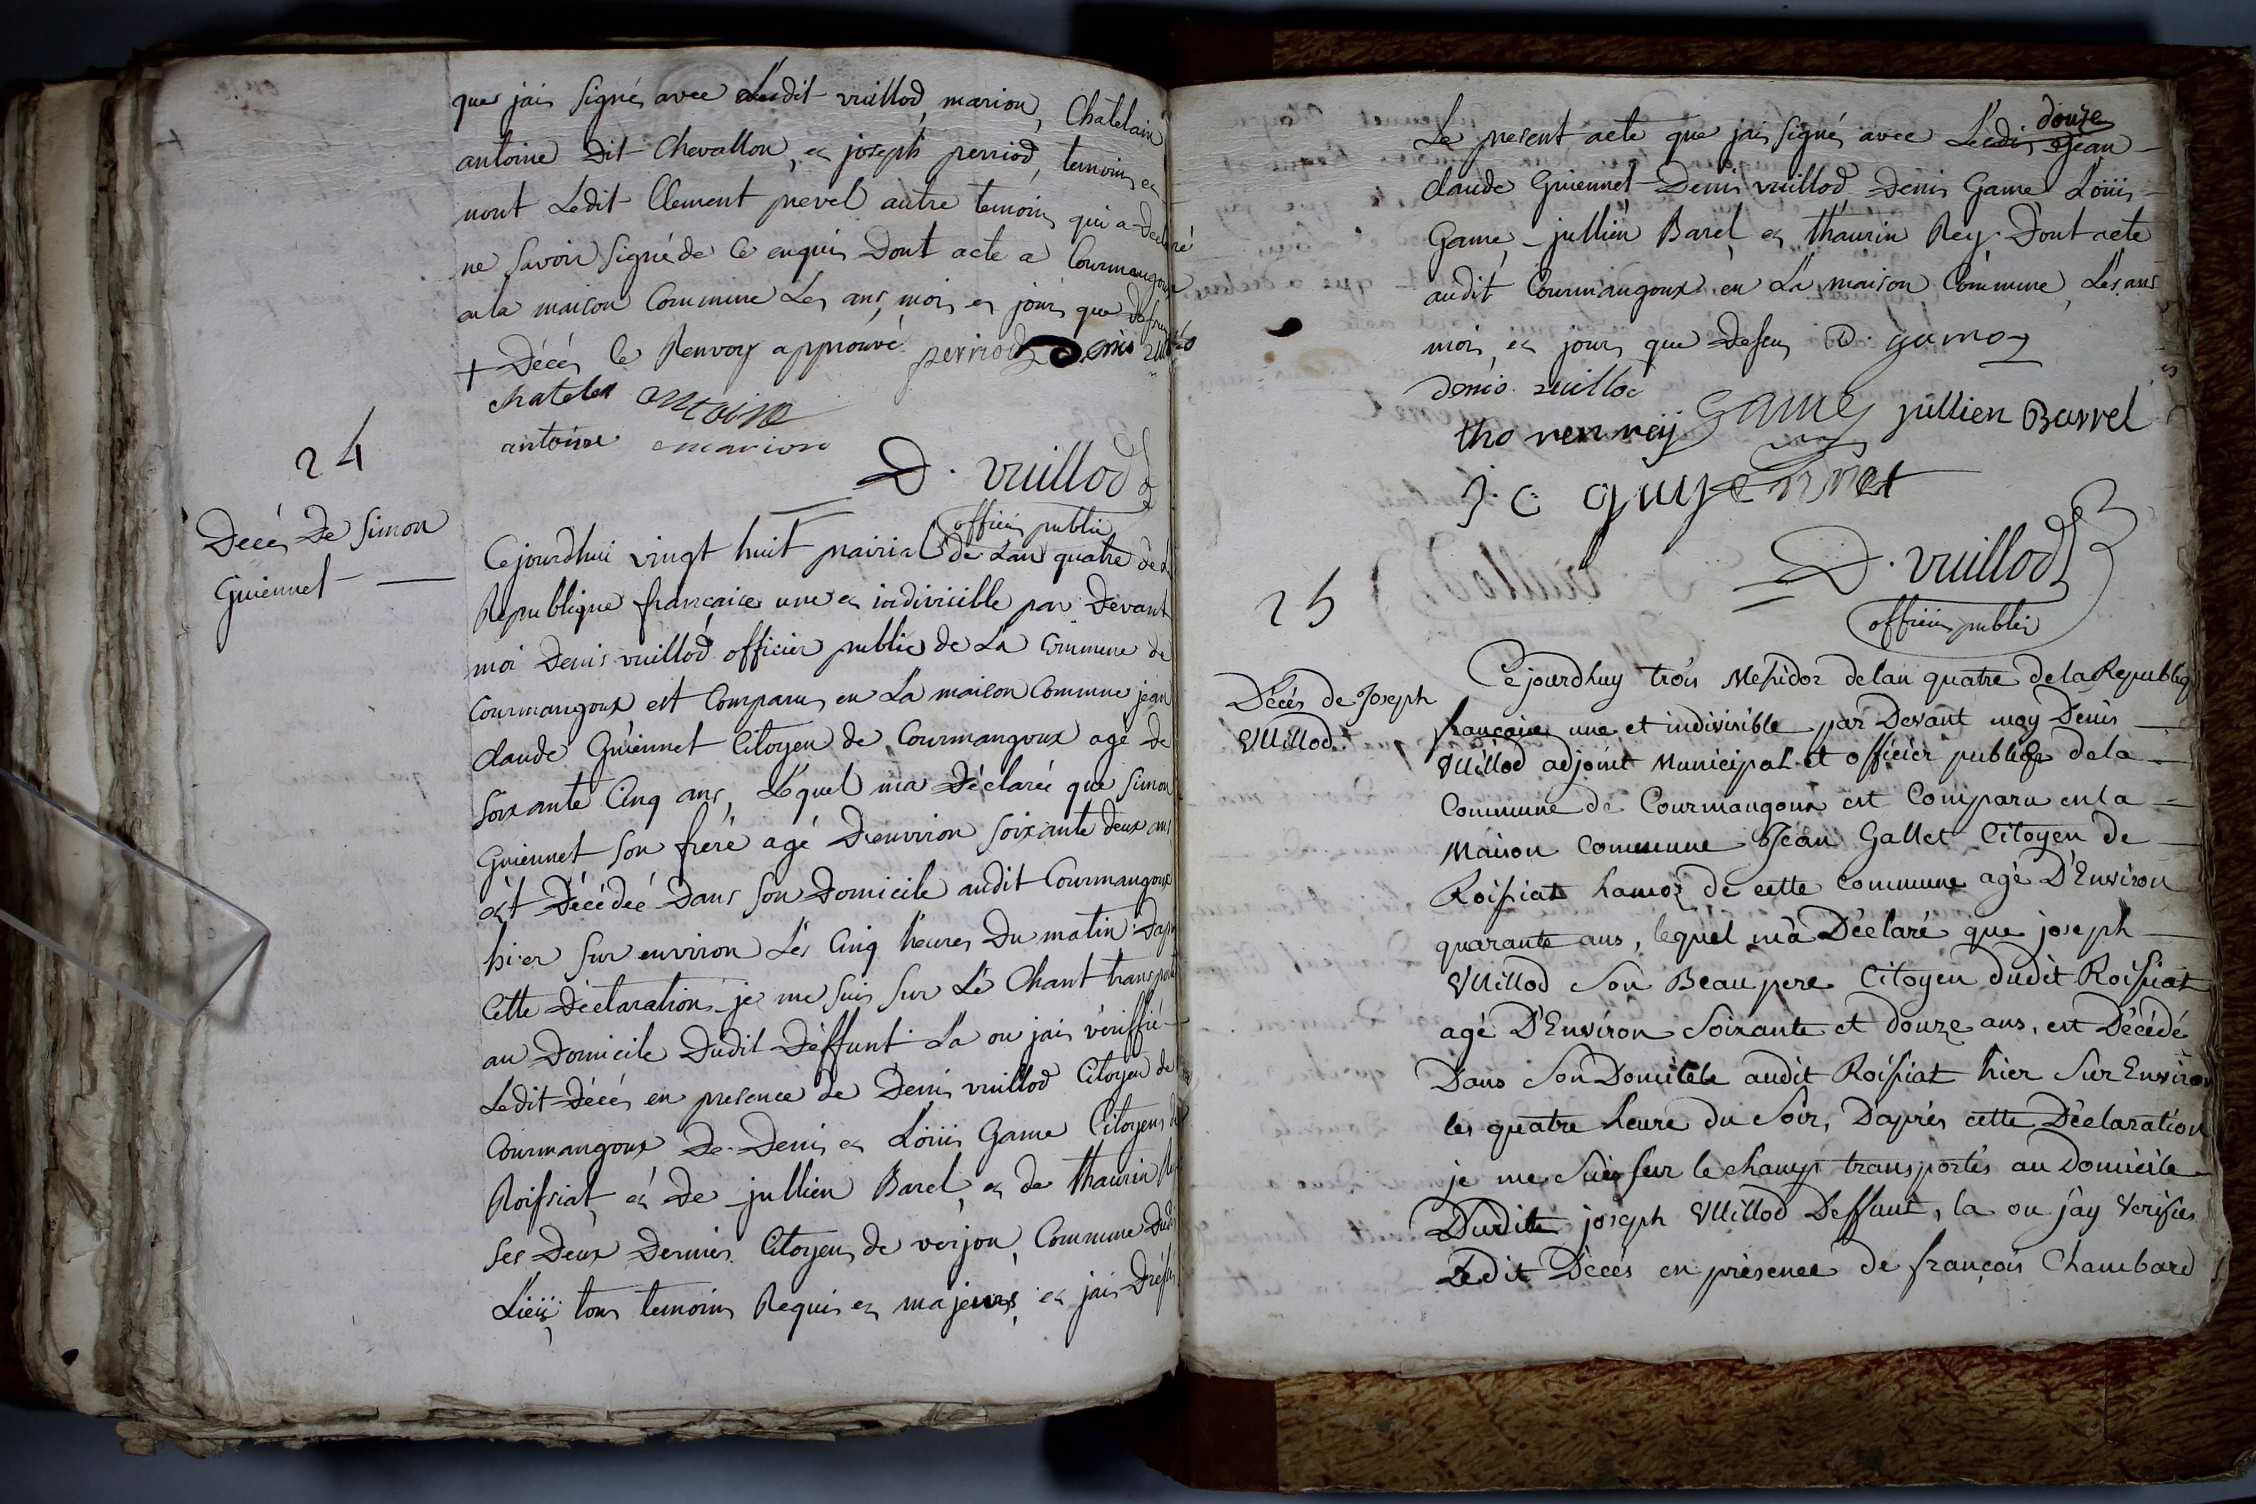 que jai signé avec Ledit vuillod, marion, Chatelain
antoine dit Chevallon, et joseph perriod, temoins et
nont Ledit Clement prevel autre temoin qui a declaré
ne savoir signé de ce enquis Dont acte a Courmangoux
en la maison Commune Les ans, mois et jours que dessus
+ Décés le Renvoy approuvé perriod Denis
chatelen antoine
antoine marion
D. vuillod
officier public
24
Decés De Simon
Guiennet
Cejourdhui vingt huit prairial de Lan quatre de la
Republique française une et indivisible par Devant
moi Denis vuillod officier public de La Commune de
Courmangoux est Comparu en La maison Commune jean
claude Guiennet Citoyen de Courmangoux agé de
soixante Cinq ans, Léquel ma Déclaréé que Simon
Guiennet son freré agé Denviron soixante deux ans
est Décédéé Dans son Domicile audit Courmangoux
hier sur environ Lés Cinq heures Du matin. Dapres
Cette Déclaration je me suis sur Lé Chant transporté
au Domicile Dudit Déffunt La ou jais vériffié
Ledit Décés en presence de Denis vuillod Citoyen de
Courmangoux De Denis et Loüis Game Citoyens de
Roissiat, et De jullien Barel, et de thaurin Rey
ses Deux Derniers Citoyens de verjon, Commune Dudit
Liëü, tous temoins Requis et majeurs, et jais Dréssé
douze
Le present acte que jais signé avec Ledis Jean
claude Guiennet Denis vuillod Denis Game Loüis
Game, jullien Barel et thaurin Rey. Dont acte
audit Courmangoux en La maison Commune, Lés ans
mois, et jours que dessus D. gamo
denis vuillod
tho ren reij Game jullien Barrel
J. C guyennet
D. vuillod
officier public
25
Décés de Joseph
Vuillod.
Cejourdhuy trois Messidor delan quatre dela Republiq
française une et indivisible par Devant moy Denis
Vuillod adjoint Municipal et officier publiqe dela
Commune de Courmangoux est Comparu en la
Maison Commune Jean Gallet Citoyen de
Roissiat hamoz de cette Commune agé D'Environ
quarante ans, lequel m'a Déclaré que joseph
Vuillod Son Beau pere Citoyen dudit Roissiat
agé D'Environ Soixante et douze ans, est Décédé
Dans Son Domicile audit Roissiat hier Sur Environ
les quatre heure du Soir, D'aprés cette Déclaration
je me Suis sur le champ transportés au Domicile
Dudit joseph Vuillod Deffunt, la ou jay Verifiée
Ledit Décés en présence de françois Chambard